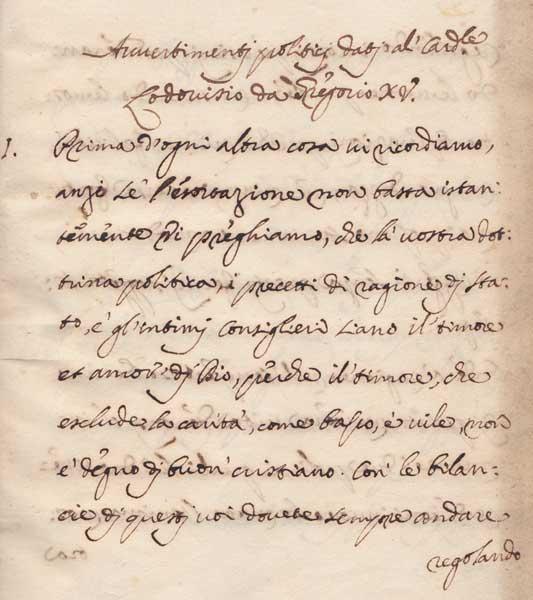 Avvertimenti politici dati al' Cardle.
Lodovisio da Gregorio XV.
1. Prima d'ogni altra cosa vi ricordiamo,
anzi se l'esortazione non basta istan-
temente vi preghiamo, che la vostra dot-
trina politica, i precetti di ragione di sta-
to, e gl'intimi Consiglieri siano il' timore
et amor' di Dio, perche il' timore, che
esclude la carità, come basso, e vile, non
è degno di buon' cristiano. Con' le bilan-
cie di questi voi dovete sempre andare
regolando